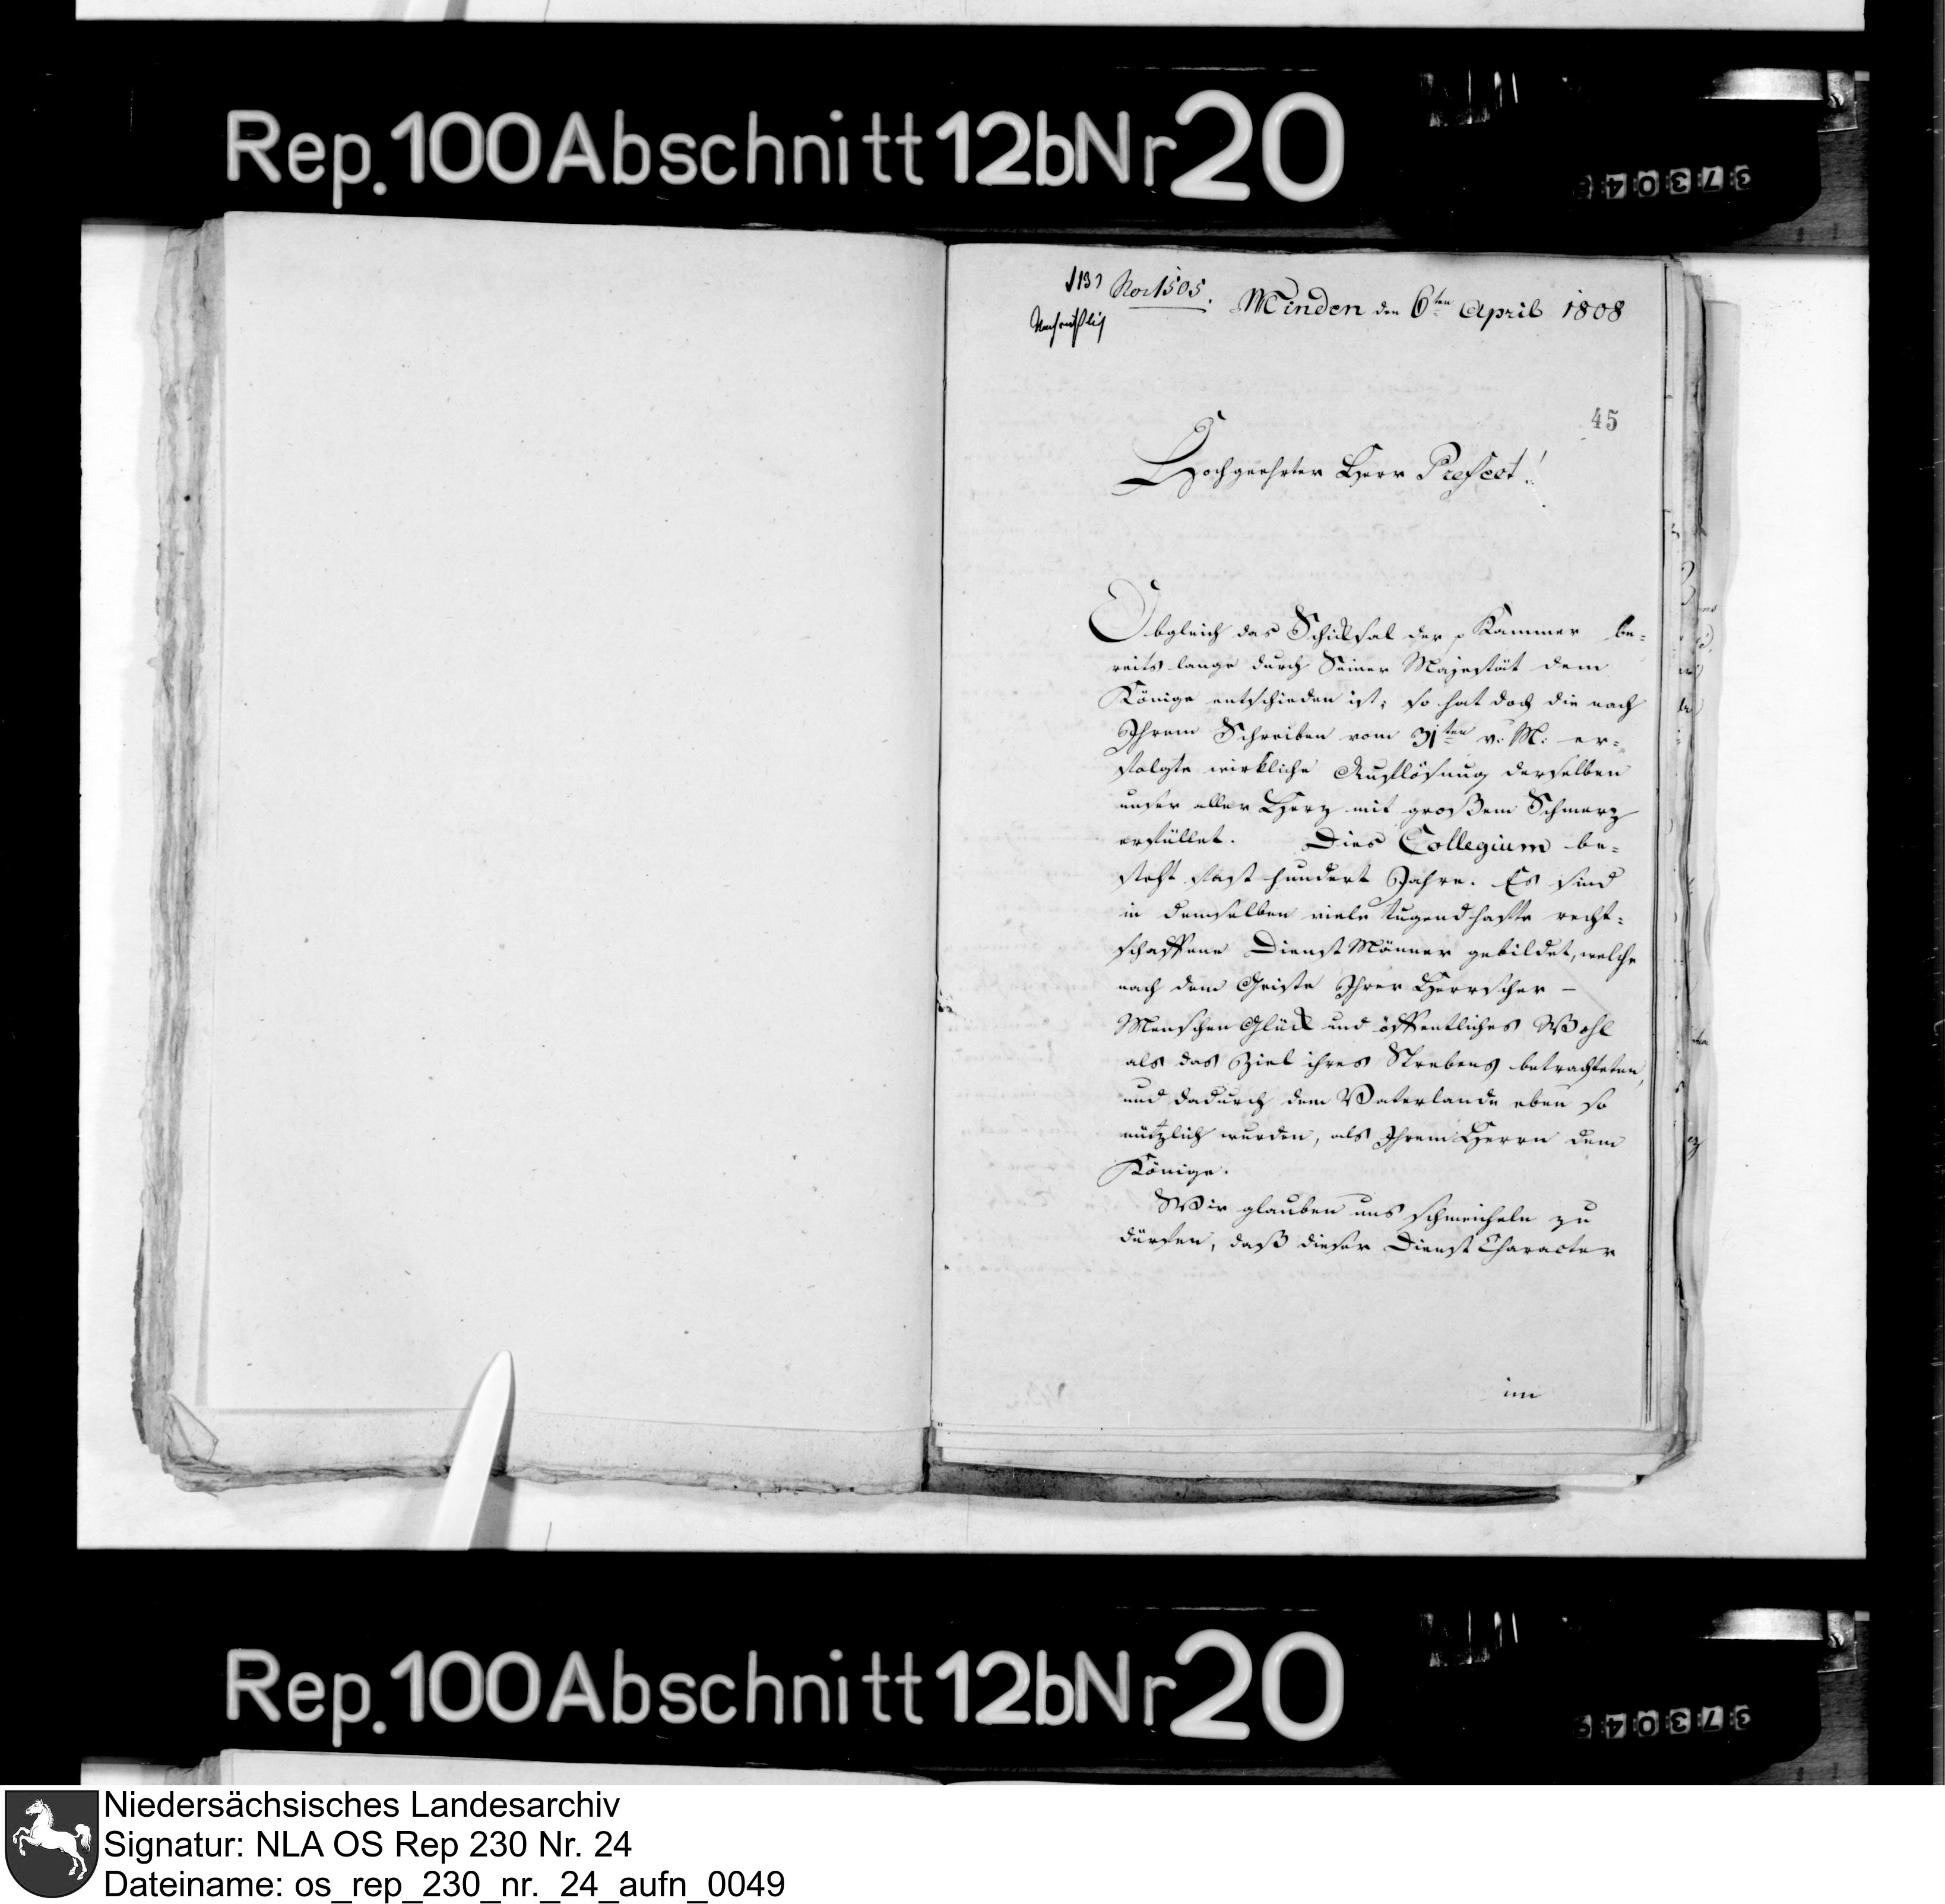 Rep. 100 Abschnitt 12b Nr 20
No: 1505.
Minden den 6ten April 1808
45
Hochgeehrter Herr Prefect!
Obgleich das Schicksal der p Kammer be=
reits lange durch Seiner Majestät dem
Könige entschieden ist; so hat doch die nach
Ihrem Schreiben vom 31ten v: M: er=
folgte wirkliche Auflösung derselben
unser aller Herz mit großem Schmerz
erfüllet. Dies Collegium be=
steht fast hundert Jahre. Es sind
in demselben viele tugendhafte recht=
schaffene Dienst Männer gebildet, welche
nach dem Geiste Ihrer Herrscher –
Menschen Glück und öffentliches Wohl
als das Ziel ihres Strebens betrachteten,
und dadurch dem Vaterlande eben so
nützlich wurden, als Ihrem Herrn dem
Könige.
Wir glauben uns schmeicheln zu
dürfen, daß dieser Dienst Character
im
Rep. 100 Abschnitt 12b Nr 20
Niedersächsisches Landesarchiv
Signatur: NLA OS Rep 230 Nr. 24
Dateiname: os_rep_230_nr._24_aufn_0049